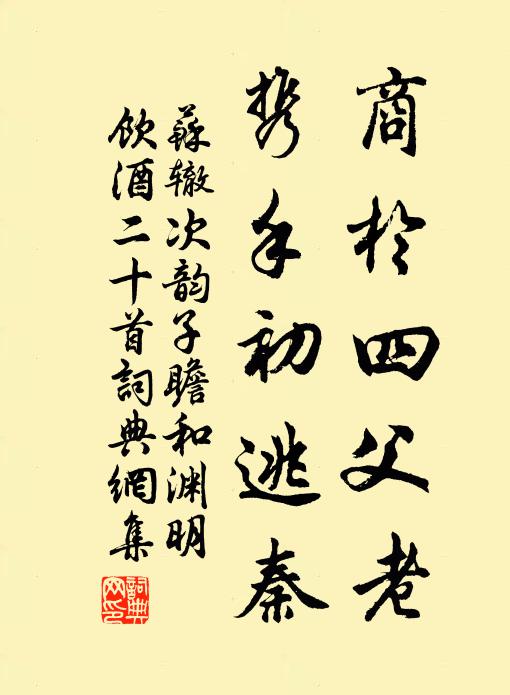 商於四父老
携手初逃秦
蘇辙次韵子瞻和渊明
饮酒二十首詞典網集